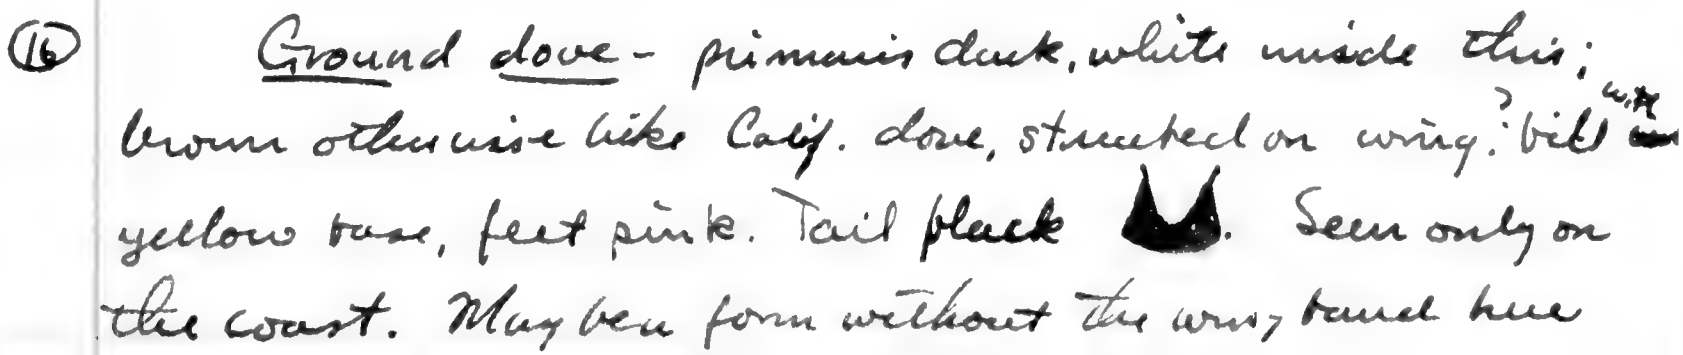 (16) Ground dove - primaries dark, white inside this;
brown otherwise like Calif. dove, streaked on wing? bill with
yellow base, feet pink. Tail black. Seen only on
the coast. May be a form without the wing band here